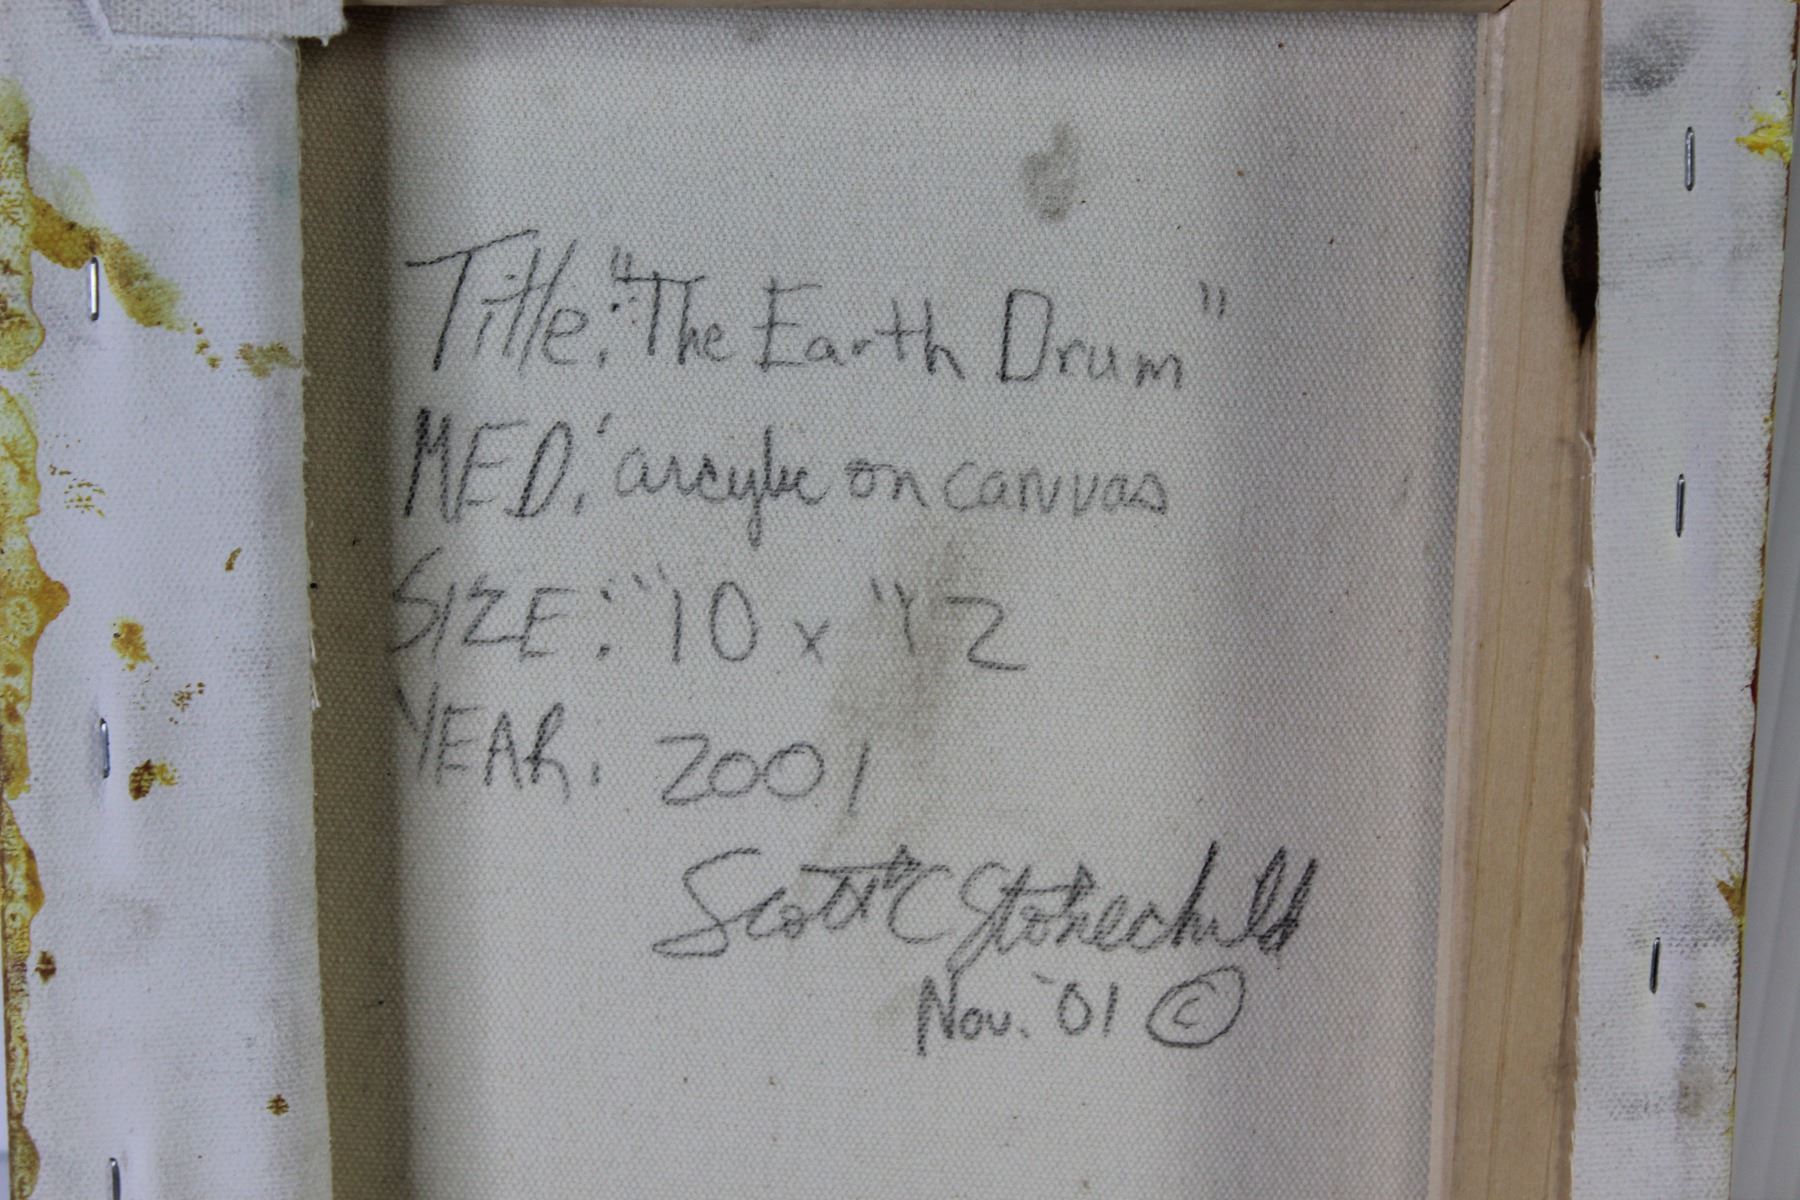 Title: "The Earth Drum"
MED: arcylic on canvas
SIZE: "10 x "12
YEAR: 2001
Scott C Stonechild
Nov. '01 ©